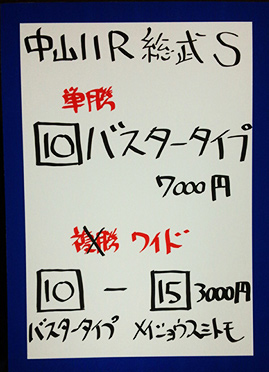 中山11R 総武S
単勝
10 バスタータイプ
7000円
複勝 ワイド
10 - 15 3000円
バスタータイプ メイショウスミトモ